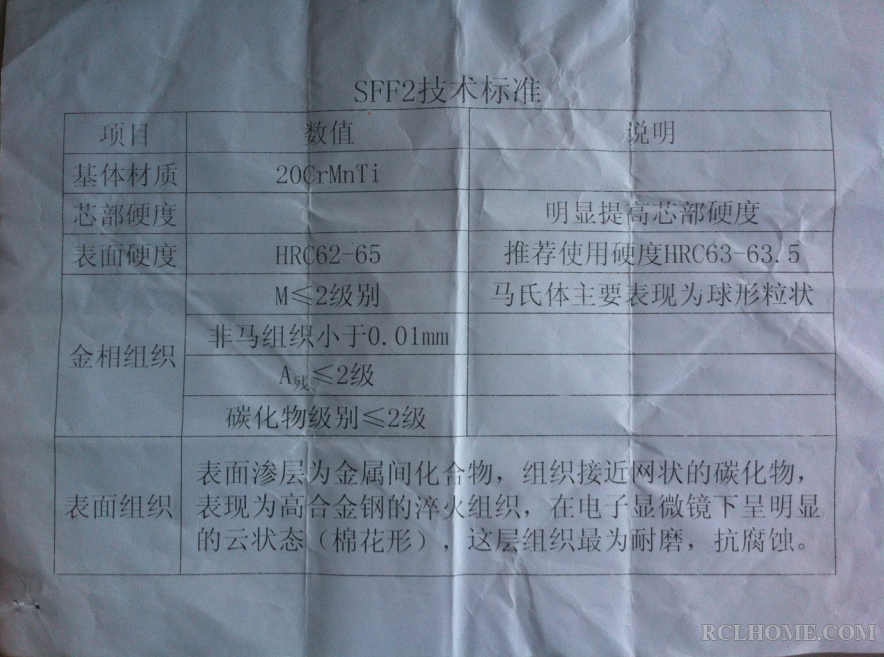 SFF2技术标准
项目 数值 说明
基体材质 20CrMnTi
芯部硬度 明显提高芯部硬度
表面硬度 HRC62-65 推荐使用硬度HRC63-63.5
金相组织 M≤2级别 马氏体主要表现为球形粒状
非马组织小于0.01mm
A残≤2级
碳化物级别≤2级
表面组织 表面渗层为金属间化合物，组织接近网状的碳化物，
表现为高合金钢的淬火组织，在电子显微镜下呈明显
的云状态（棉花形），这层组织最为耐磨，抗腐蚀。
RCLHOME.COM